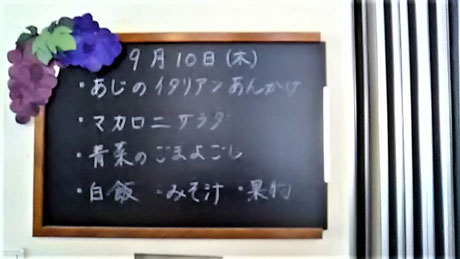 9月10日(木)
・あじのイタリアンあんかけ
・マカロニサラダ
・青菜のごまよごし
・白飯 ・みそ汁 ・果物